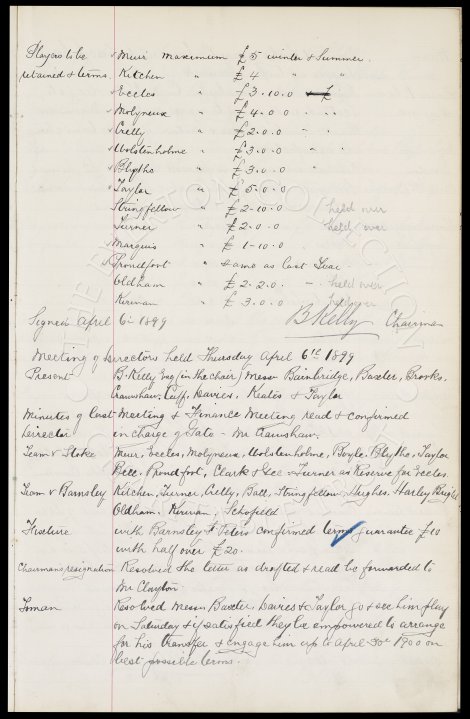 Players to be Muir maximum £5 winter & Summer.
retained & terms. Kitchen " £4 " "
Eccles " £3-10-0 & £
Molyneux " £4-0-0 " "
Crelly " £2-0-0 "
Wolstenholme " £3-0-0 " "
Blythe " £3-0-0 "
Taylor " £5-0-0
Stringfellow " £2-10-0 held over
Turner " £2-0-0 held over
Marquis " £1-10-0
Proudfoot " same as last Year
Oldham " £2-2-0 held over
Kirwan " £3-0-0 held over
Signed April 6th 1899 B Kelly Chairman
Meeting of Directors held Thursday April 6th 1899
Present B. Kelly Esq (in the chair) Messrs Bainbridge, Baxter, Brooks,
Crawshaw, Cuff, Davies, Keates & Taylor
Minutes of last Meeting & Finance Meeting read & confirmed
Director in charge of Gate - Mr Crawshaw.
Team v Stoke Muir, Eccles, Molyneux, Wolstenholme, Boyle, Blythe, Taylor
Bell, Proudfoot, Clark & Gee - Turner as Reserve for Eccles.
Team v Barnsley Kitchen, Turner, Crelly, Ball, Stringfellow, Hughes, Harley
Oldham, Kirwan, Schofield
Fixture with Barnsley St Peters confirmed terms guarantee £10
with half over £20.
Chairmans resignation Resolved the letter as drafted & read be forwarded to
Mr Clayton
Toman Resolved Messrs Baxter, Davies & Taylor go & see him play
on Saturday & if satisfied they be empowered to arrange
for his transfer & engage him up to April 30th 1900 on
best possible terms.
THE EVERTON COLLECTION